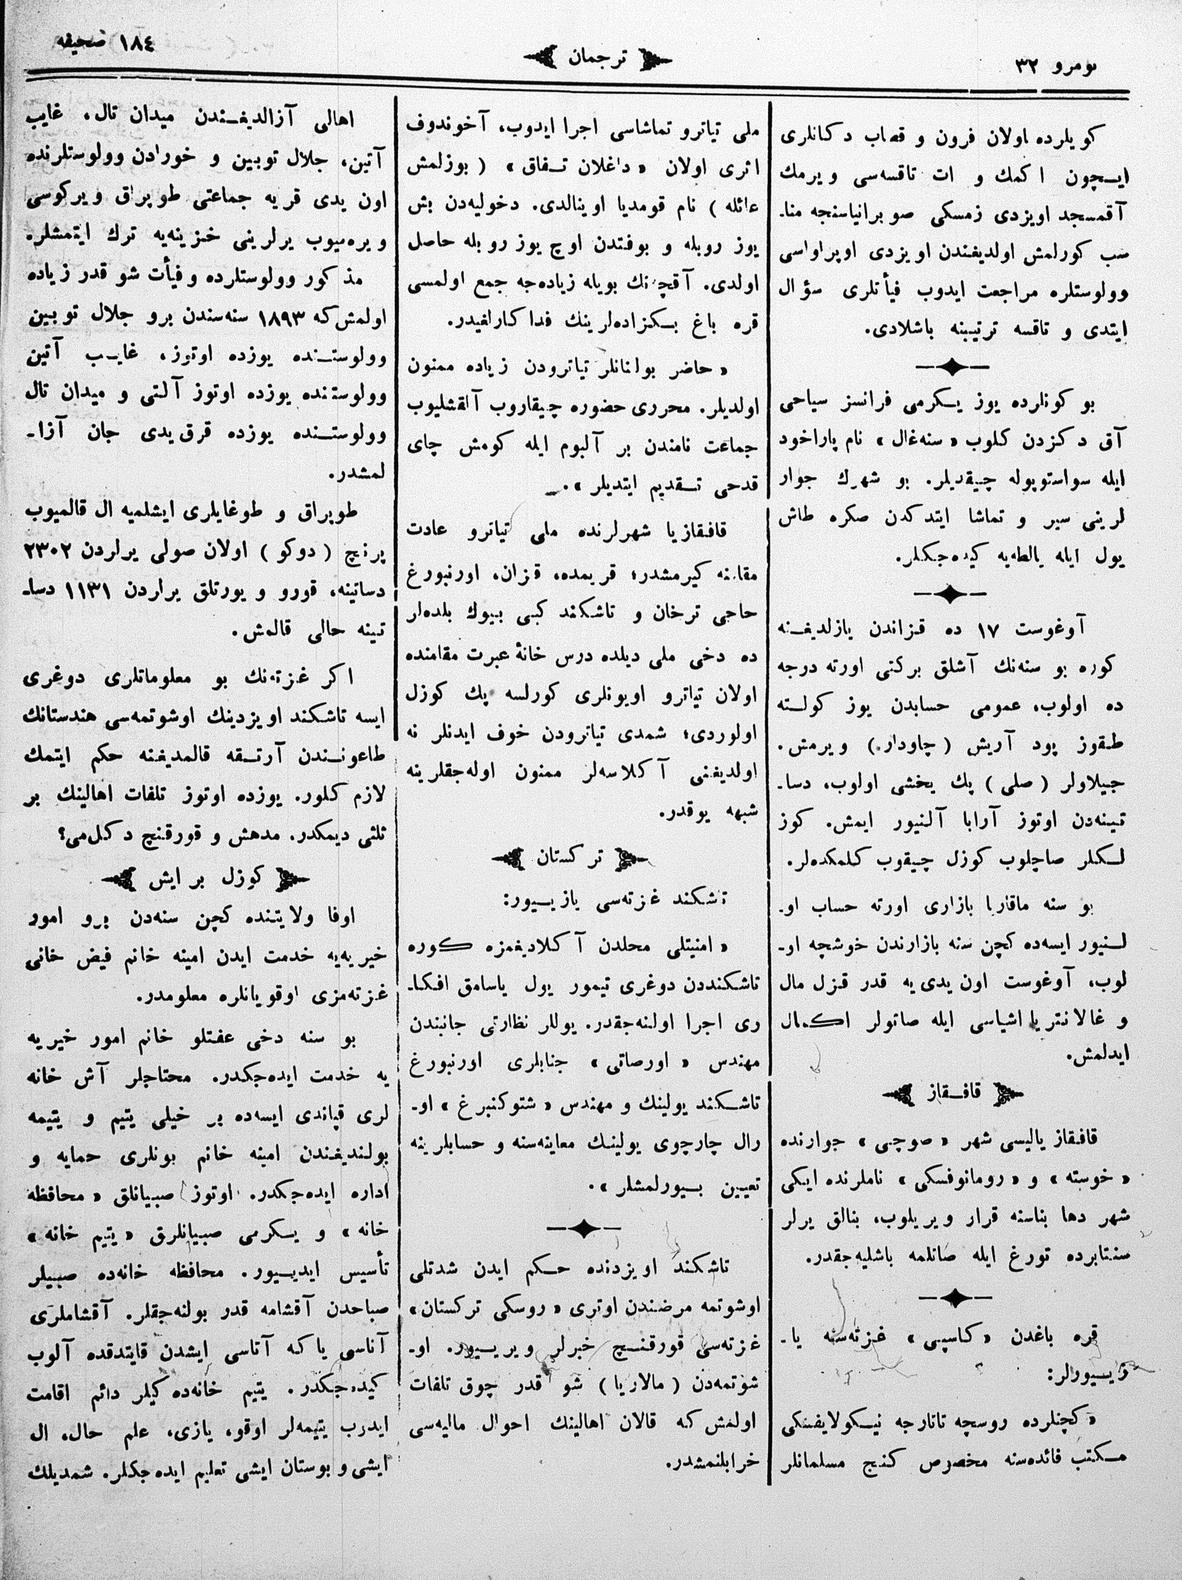 نومرو ٣٢
ترجمان
١٨٤ صحیفه
كویلرده اولان فرون و قصاب دكانلری
ایـچون اكمك و ات تاقسه‌سی ویرمك
آقمسجد اویزدی زمسكی صوبرانیاسنجه منا-
سب كورلمش اولدیغندن اویزدی اوپراواسی
وولوستلره مراجعت ایدوب فیأتلری سؤال
ایتدی و تاقسه ترتیبنه باشلادی.
بو كونلرده یوز یـكرمی فرانسز سیاحی
آق دكزدن كلوب « سنه‌غال » نام پاراخود
ایله سواستوپوله چیقدیلر. بو شهرك جوار
لرینی سیر و تماشا ایتدكدن صكره طاش
یول ایله یالطه‌یه كیده‌جكلر.
آوغوست ١٧ ده قزاندن یازلدیغنه
كوره بو سنه‌نك آشلق بركتی اورته درجه
ده اولوب، عمومی حسابدن یوز كولته
طـقوز پود آریش (چاودار) ویرمش.
جیلاولر (صلی) پك یخشی اولوب، دسا-
تینه‌دن اوتوز آرابا آلنیور ایمش. كوز
لـكلر صاچلوب كوزل چیقوب كلمكده‌لر.
بو سنه ماقاریا بازاری اورته حساب او-
لـنیور ایسه‌ده كچن سنه بازارندن خوشچه او-
لوب، آوغوست اون یدی‌یه قدر قزل مال
و غالانتریا اشیاسی ایله صاتولر اكـمال
ایدلمش.
قافـقاز
قافقاز یالیسی شهر « صوچی » جوارنده
« خوسته » و « رومانوفسكی » ناملرنده ایكی
شهر دها بناسنه قرار ویریلوب، بنالق یرلر
سنتابرده تورغ ایله صاتلمه باشلیه‌جقدر.
قره باغدن « كاسپی » غزته‌سنه یا-
زیـیورلر:
« كچنلرده روسچه تاتارجه نیـكولایفسكی
مـكتب فائده‌سنه مخصوص كنج مسلمانلر
ملی تیاترو تماشاسی اجرا ایدوب، آخوندوف
اثری اولان « داغلان تـفاق » (بوزلمش
عائله) نام قومدیا اوینالدی. دخولیه‌دن بش
یوز روبله و بوفتدن اوچ یوز روبله حاصل
اولدی. آقچه‌نك بویله زیاده‌جه جمع اولمسی
قره باغ بـكزاده‌لرینك فداكارلغیدر.
« حاضر بولنانلر تیاترودن زیاده ممنون
اولدیلر. محرری حضوره چیقاروب آلقشلیوب
جماعت نامندن بر آلبوم ایله كومش چای
قدحی تـقدیم ایتدیلر ».
قافقازیا شهرلرنده ملی تیاترو عادت
مقامنه كیرمشدر؛ قریمده، قزان، اورنبورغ
حاجی ترخان و تاشكند كبی بیوك بلده‌لر
ده دخی ملی دیلده درس خانهٔ عبرت مقامنده
اولان تیاترو اویونلری كورلسه پك كوزل
اولوردی؛ شمدی تیاترودن خوف ایدنلر نه
اولدیغنی آكلاسه‌لر ممنون اوله‌جقلرینه
شبهه یوقدر.
تركستان
تاشكند غزته‌سی یازیـیور:
« امنیتلی محلدن آكلادیغمزه كوره
تاشكنددن دوغری تیمور یول یاسامق افكا-
ری اجرا اولنه‌جقدر. یوللر نظارتی جانبندن
مهندس « اورصاتی » جنابلری اورنبورغ
تاشـكند یولینك و مهندس « شتوكنبرغ » او-
رال چارچوی یولینك معاینه‌سنه و حسابلرینه
تعیین بـیورلمشلر ».
تاشكند اویزدنده حـكم ایدن شدتلی
اوشوتمه مرضندن اوتری « روسكی تركستان »
غزته‌سی قورقنـچ خبرلر ویریـیور. او-
شوتمه‌دن (مالاریا) شو قدر چوق تلفات
اولمش كه قالان اهالینك احوال مالیه‌سی
خرابلنمشدر.
اهالی آزالدیغـندن میدان تال، غایب
آتین، جلال توبین و خورادن وولوستلرنده
اون یدی قریه جماعتی طوپراق ویركوسی
ویره‌میوب یرلرینی خزینه‌یه ترك ایتمشلر.
مذكور وولوستلرده وفیأت شو قدر زیاده
اولمش كه ١٨٩٣ سنه‌سندن برو جلال توبین
وولوستـنده یوزده اوتوز، غایب آتین
وولوستنده یوزده اوتوز آلتی و میدان تال
وولوستـنده یوزده قرق یدی جان آزا-
لمشدر.
طوپراق و طوغایلری ایشلمیه ال قالمیوب
پرنچ (دوكو) اولان صولی یرلردن ٢٣٠٢
دساتینه، قورو و یورتلق یرلردن ١١٣١ دسا-
تینه حالی قالمش.
اكر غزته‌نك بو معلوماتلری دوغری
ایسه تاشكند اویزدینك اوشوتمه‌سی هندستانك
طاعونـندن آرتـقه قالمدیغنه حكم ایتمك
لازم كلور. یوزده اوتوز تلفات اهالینك بر
ثلثی دیمكدر. مدهش و قورقنچ دكل‌می؟
كوزل بر ایش
اوفا ولایتنده كچن سنه‌دن برو امور
خیریه‌یه خدمت ایدن امینه خانم فیض خانی
غزته‌مزی اوقویانلره معلومدر.
بو سنه دخی عفتلو خانم امور خیریه
یه خدمت ایده‌جكدر. محتاجلر آش خانه
لری قپاندی ایسه‌ده بر خیلی یتیم و یتیمه
بولندیغندن امینه خانم بونلری حمایه و
اداره ایده‌جكدر. اوتوز صبیانلق « محافظه
خانه » و یـكرمی صبیانلرق « یتیم خانه »
تأسیس ایدیـیور. محافظه خانه‌ده صبیلر
صباحدن آقشامه قدر بولنه‌جقلر. آقشاملری
آناسی یاكه آتاسی ایشدن قایتدقده آلوب
كیده‌جكدر. یتیم خانه‌ده كیلر دائم اقامت
ایدرب یتیمه‌لر اوقو، یازی، علم حال، ال
ایشی و بوستان ایشی تعلیم ایده‌جكلر. شمدیلك